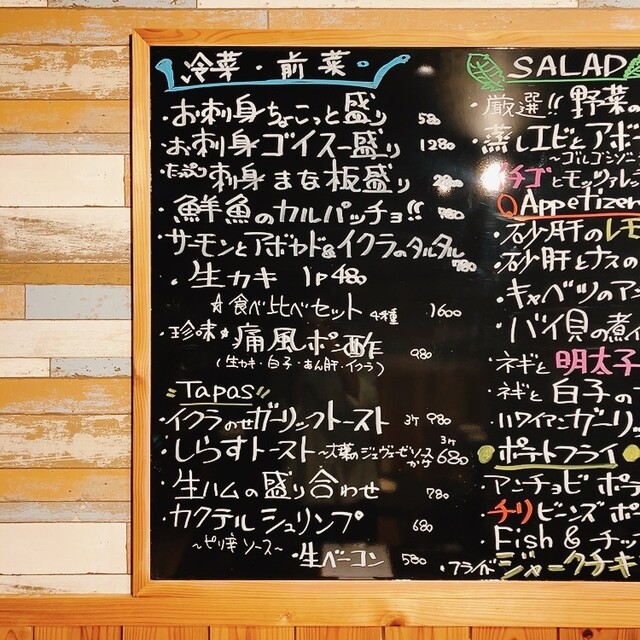 冷菜・前菜
・お刺身ちょこっと盛り 580
・お刺身ゴイス一盛り 1280
・たっぷり刺身まな板盛り
・鮮魚のカルパッチョ!! 980
・サーモンとアボカド&イクラのタルタル 780
・生カキ 1P480
☆食べ比べセット 4種 1600
・珍味★痛風ポン酢 980
(生カキ・白子・あん肝・イクラ)
"Tapas"
・イクラのせガーリックトースト 3ケ 980
・しらすトースト〜大葉のジェノヴェーゼソースがけ 3ケ 680
・生ハムの盛り合わせ 780
・カクテルシュリンプ 680
〜ピリ辛ソース〜
・生ベーコン 580
SALAD
・厳選!!野菜の
・蒸しエビとアボ
イチゴとモッツァレ
Appetizer
・砂肝のレモ
・砂肝とナスの
・キャベツのアン
・バイ貝の煮
・ネギと明太子
・ネギと白子の
・ハワイアンガーリッ
ポテトフライ
アンチョビポテ
チリビーンズポ
Fish & チッ
・フライドジャークチキ